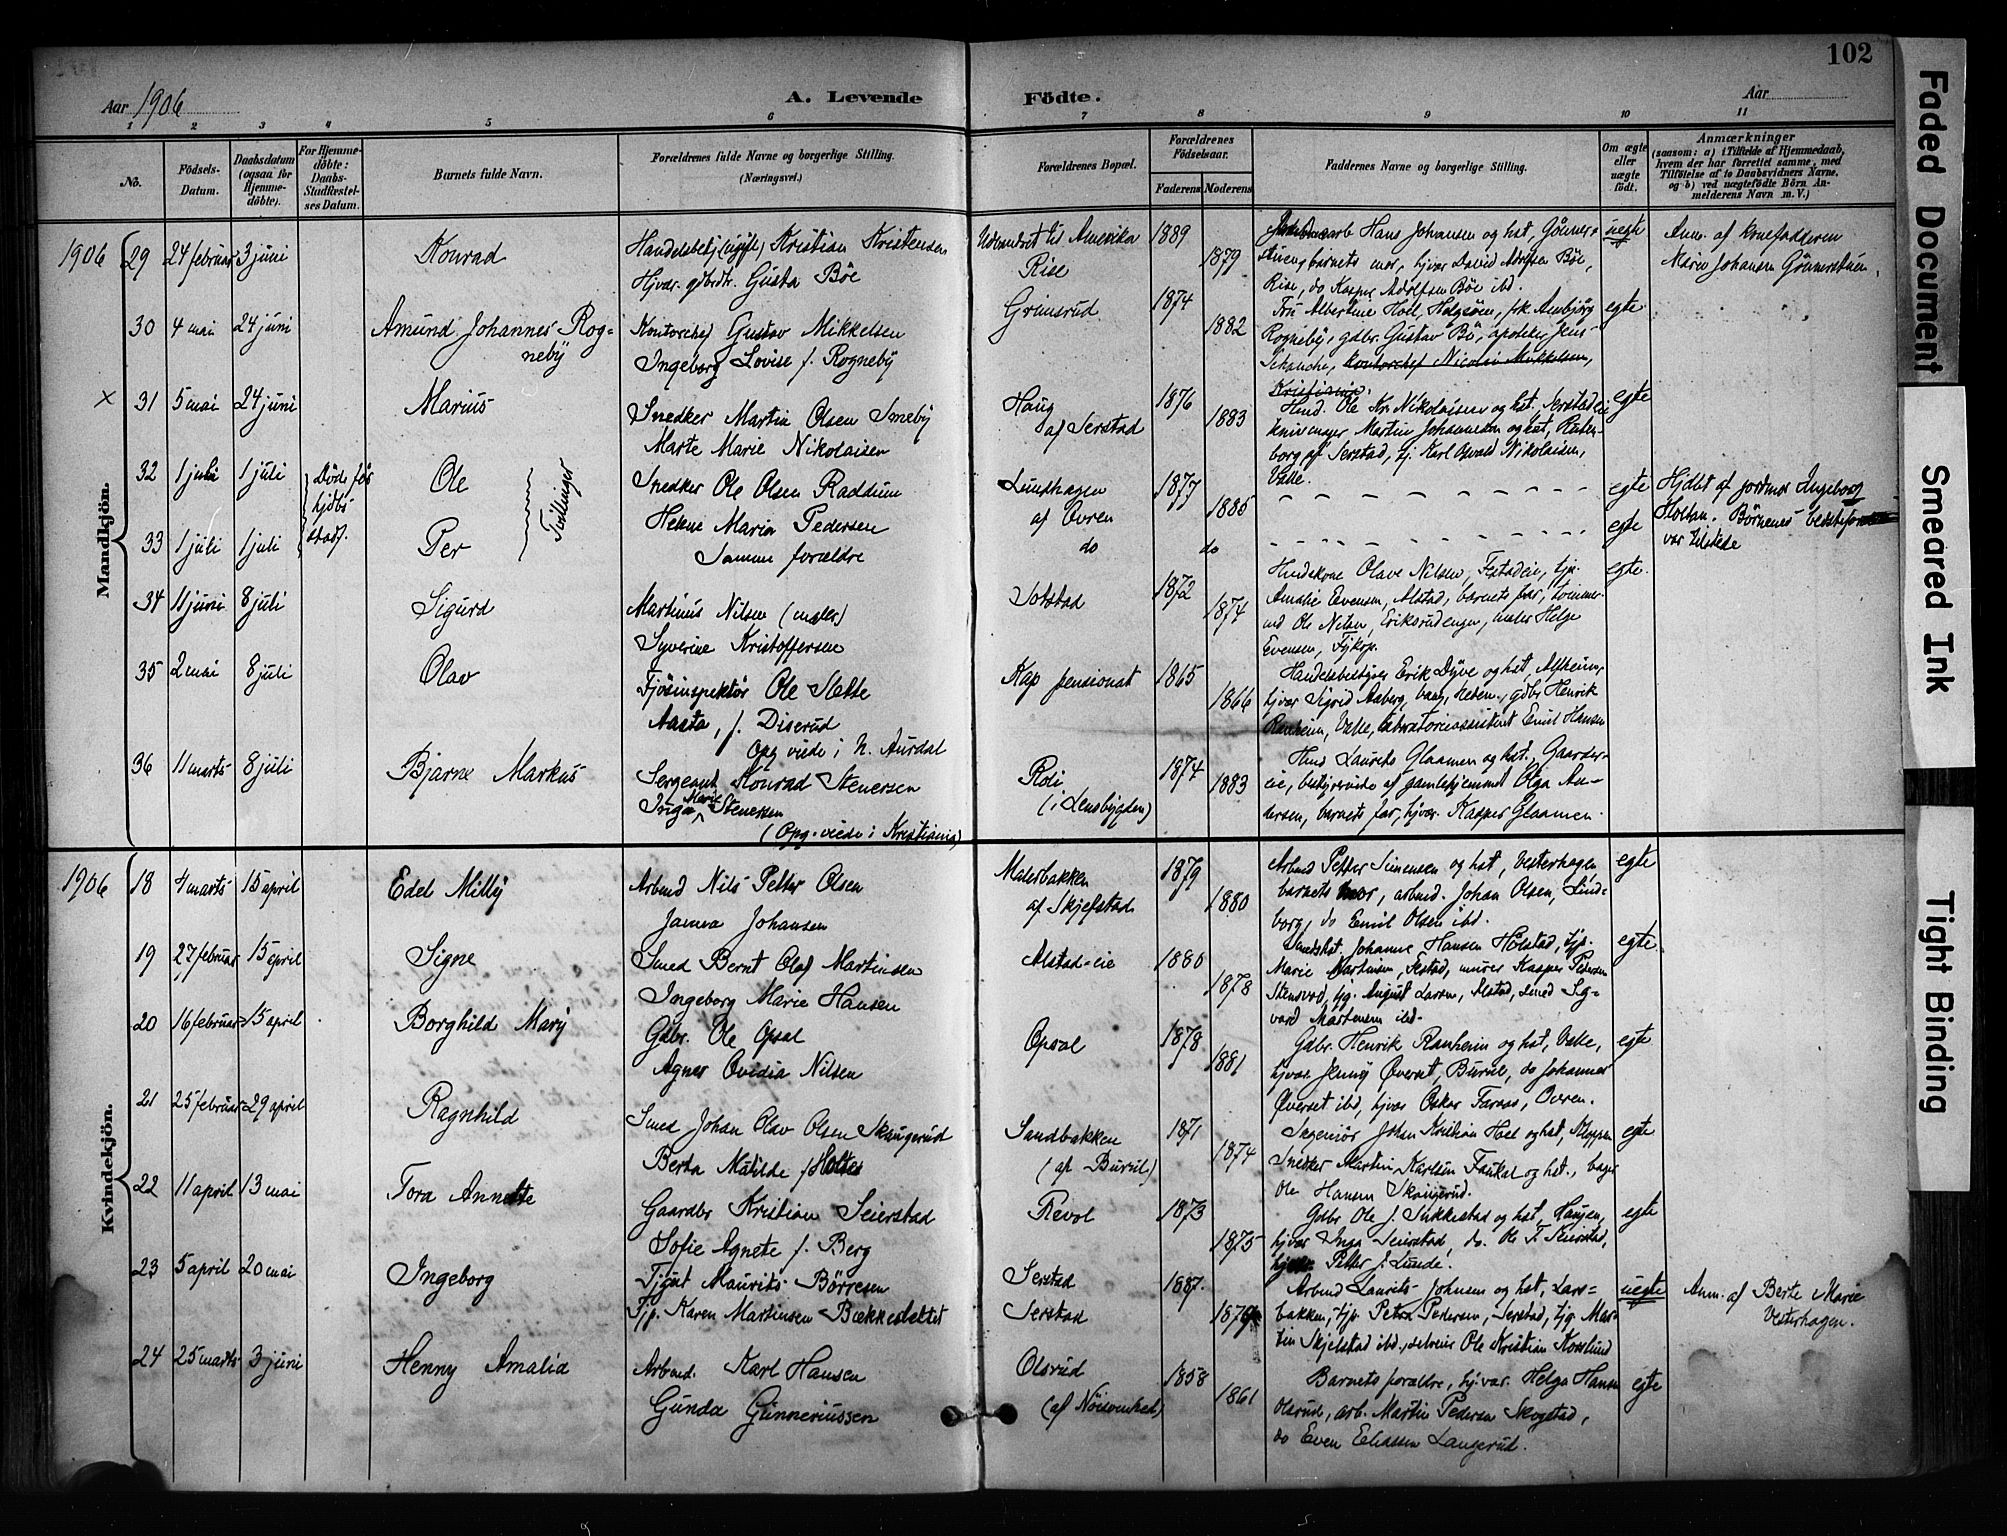 102
Aar 1906
A. Levende Födte.
Aar
1 2 3 4 5 6 7 8 9 10 11
No.
Födsels-Datum.
Daabsdatum (ogsaa for Hjemmedöbte).
For Hjemmedöbte: Daabs-Stadfæstelses Datum.
Barnets fulde Navn.
Forældrenes fulde Navne og borgerlige Stilling.
(Næringsvei.)
Forældrenes Bopæl.
Forældrenes Födselsaar.
Faderens Moderens
Faddernes Navne og borgerlige Stilling.
Om ægte eller uægte födt.
Anmærkninger
(saasom: a) i Tilfælde af Hjemmedaab, hvem der har forrettet samme, med Tilföielse af to Daabsvidners Navne, og b) ved uægtefödte Börn Anmelderens Navn m. V.)
Mandkjön.
1906 29 24 februar 3 juni Konrad
Kristian Kristensen
Hjvær. gdbrdtr. Gusta Böe
Udvandret til Amerika 1889
Rise 1879
Hans Johansen og hst,
barnets mor, hjvær David Adolfsen Böe,
Rise, do Kasper Adolfsen Böe ibd.
uegte
Anm. af konefadderen
Marie Johansen
30 4 mai 24 juni Amund Johannes Rogneby
Kontorchef Gustav Mikkelsen
Ingeborg Lovise f. Rogneby
Grimsrud 1874 1882
Fru Albertine Hoel, Helgsöen, frk. Ambjörg
Rogneby, gdbr. Gustav Bö, apoteker Jens
Schanche, kontorchef Nicolai Mikkelsen,
Kristiania.
egte
x 31 5 mai 24 juni Marius
Snedker Martin Olsen Smeby
Marte Marie Nikolaisen
Haug
af Serstad 1876 1883
Ole Kr. Nikolaisen og hst, Serstadeie
Martin Johannesen og hst,
af Serstad, tj. Karl Osvald Nikolaisen,
Valle.
egte
32 1 juli 1 juli Döde för hjdbs-stadf. Ole
Tvillinger
Snedker Ole Olsen Raddum
Helene Maria Pedersen
Lundhagen
af Ovren 1877 1885
egte
Hjdbt af jordmor Ingeborg
Börnenes
var tilstede
33 1 juli 1 juli Per
Samme forældre
do do
egte
34 11 juni 8 juli Sigurd
Martinus Nilsen (maler)
Syverine Kristoffersen
Sotstad 1872 1874
Olave Nilsen, Festadeie, tjp.
Amalie Evensen, Alstad, barnets far, tömmer-
md Ole Nilsen, Eriksrudengen, maler Helge
Evensen,
egte.
35 2 mai 8 juli Olav
Fjösinspektör Ole Slette
Aasta, f. Diserud
Opg. viede i N. Aurdal
Kap pensionat 1865 1866
Handelsbestyrer Erik Dyve og hst,
hjvær Sigrid Aaberg, gdbr Henrik
Ranheim, Valle, laboratorieassistent Emil Hansen
36 11 marts 8 juli Bjarne Markus
Sergeant Konrad Stenersen
Inga Marie Stenersen
(Opg. viede i Kristiania)
Röli
(i Lensbygden) 1874 1883
Laurits Glaamen og hst, Gaarder-
eie, bestyrerinde af gamlehjemmet Olga An-
dersen, barnets far, hjvær. Kasper Glaamen.
Kvindekjön.
1906 18 4 marts 15 april Edel Milly
Arbmd Nils Petter Olsen
Janna Johansen
Malerbakken
af Skjefstad 1879 1880
Arbmd Petter Simensen og hst, Vesterhagen
barnets mor, arbmd. Johan Olsen, Lind-
borg, do Emil Olsen ibd.
egte
19 27 februar 15 april Signe
Smed Bernt Olaf Martinsen
Ingeborg Marie Hansen
Alstad-eie 1880 1878
Johanne Hansen Holstad, tjp.
Marie Martinsen, Festad, murer Kasper Pedersen
tjg. August Larsen, Alstad, smed Sig-
vard Martinsen ibd.
egte.
20 16 februar 15 april Borghild Mary
Gdbr. Ole Opsal
Agnes Ovidia Nilsen
Opsal 1878 1881
Gdbr. Henrik Ranheim og hst, Valle,
hjvær. Jenny Överset, Burul, do Johannes
Överset ibd, hjvær Oskar Ovren.
egte
21 25 februar 29 april Ragnhild
Smed Johan Olav Olsen Skaugerud
Berta Matilde f. Holte
Sandbakken
(af Burul) 1871 1874
Ingeniör Johan Kristian Hoel og hst, Kloppen
Snedker Martin Karlsen Faukal og hst., bager
Ole Hansen Skaugerud.
egte
22 11 april 13 mai Tora Annette
Gaardbr Kristian Seierstad
Sofie Agnete f. Berg
Revol 1873 1875
Gdbr Ole J. Sukkestad og hst, Haugen,
hjvær Inga Seierstad, do. Ole F. Seierstad,
Petter J. Lunde.
egte
23 5 april 20 mai Ingeborg
Tjgut Maurits Börresen
Tjp. Karen Martinsen Bækkesletten
Serstad
Serstad 1887
Arbmd Laurits Johnsen og hst, Lars-
bakken, tjp. Petra Pedersen, Serstad, tjg. Mar-
tin Skjelstad ibd., selveier Ole Kristian Korslund
uegte
Anm. af Berte Marie
Vesterhagen.
24 25 marts 3 juni Henny Amalia
Arbmd. Karl Hansen
Gunda Gunneriussen
Olsrud
(af Nöisomhed) 1858 1861
Barnets forældre, hjvær. Helga Hansen
Olsrud, arb. Martin Pedersen Skogstad,
do Even Eliassen Langerud.
egte
Faded Document
Smeared Ink
Tight Binding